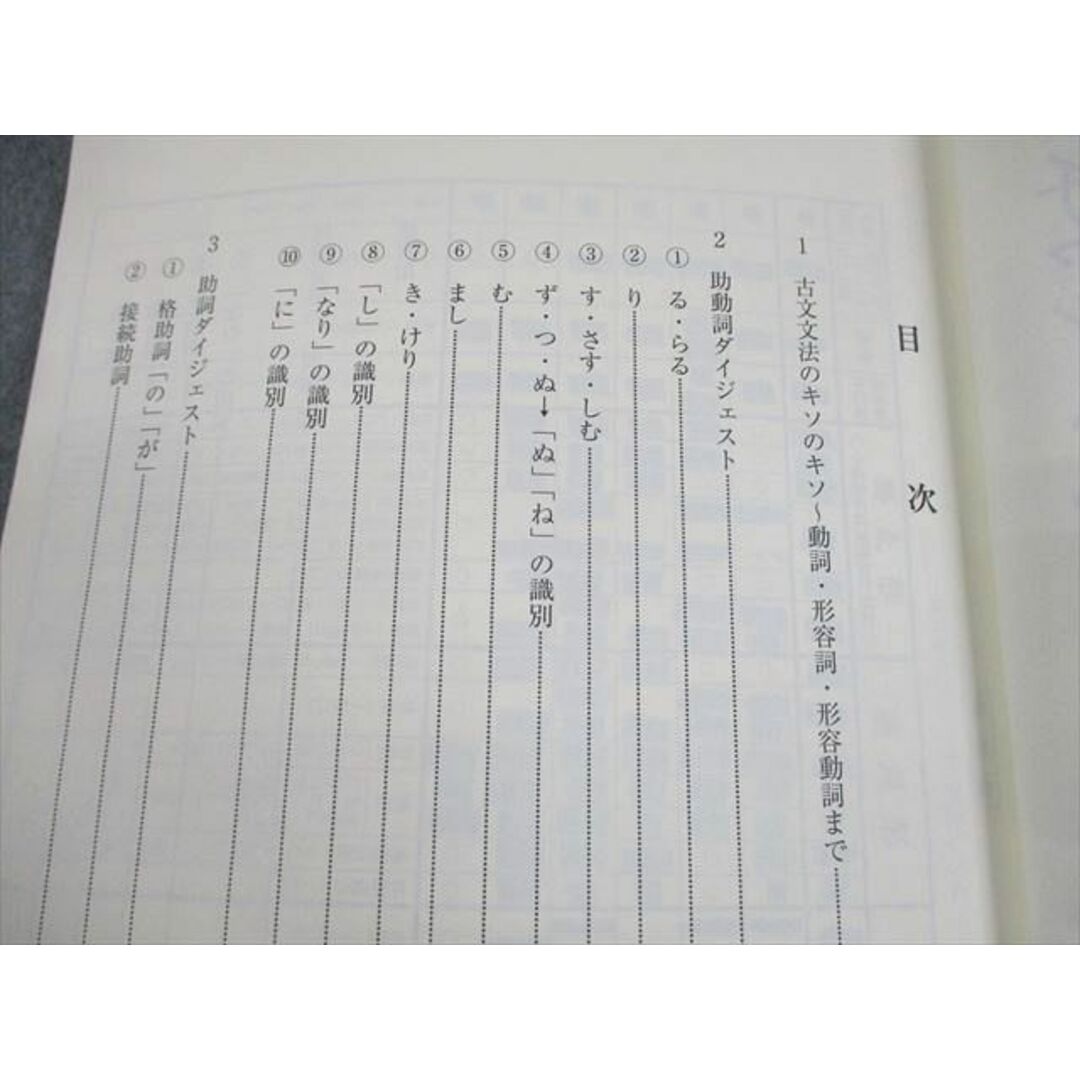 目次
1 古文文法のキソのキソ～動詞・形容詞・形容動詞まで
2 助動詞ダイジェスト
① る・らる
② り
③ す・さす・しむ
④ ず・つ・ぬ→「ぬ」「ね」の識別
⑤ む
⑥ まし
⑦ き・けり
⑧ 「し」の識別
⑨ 「なり」の識別
⑩ 「に」の識別
3 助詞ダイジェスト
① 格助詞「の」「が」
② 接続助詞